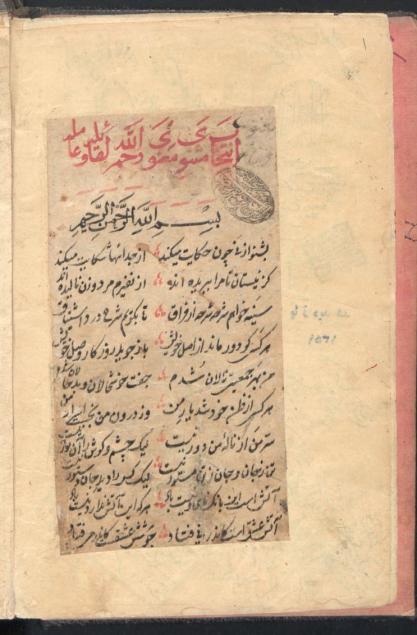 انتخاب مثنوی معنوی رحم الله لقائله وعامله
بسم الله الرحمن الرحیم
بشنو از نی چون حکایت میکند از جدائیها شکایت میکند
کز نیستان تا مرا ببریده اند از نفیرم مرد و زن نالیده اند
سینه خواهم شرحه شرحه از فراق تا بگویم شرح درد اشتیاق
هر کسی کو دور ماند از اصل خویش باز جوید روزگار وصل خویش
من بهر جمعیتی نالان شدم جفت خوشحالان و بدحالان شدم
هر کسی از ظن خود شد یار من وز درون من نجست اسرار من
سر من از ناله من دور نیست لیک چشم و گوش را آن نور نیست
تن ز جان و جان ز تن مستور نیست لیک کس را دید جان دستور نیست
آتش است این بانگ نای و نیست باد هر که این آتش ندارد نیست باد
آتش عشق است کاندر نی فتاد جوشش عشق است کاندر می فتاد